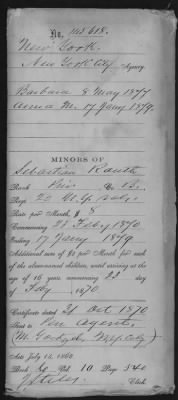 No. 143618.
New York.
New York City Agency.
Barbara 8 May 1877
Anna M. 17 Jany 1879.
MINORS OF
Sebastian Rauth
Rank Priv. Co. B.
Regt 20 N.Y. Vols.
Rate per Month, $ 8
Commencing 23 Feby 1870
Ending 17 Jany 1879
Additional sum of $2 per Month for each
of the abovenamed children, until arriving at the
age of 16 years, commencing 23 day
of Feby 1870
Certificate dated 21 Oct 1870
Sent to Pen Agent.
N.Y. City)
Act July 14, 1862.
Book Vol. 10 Page 340
Clerk.